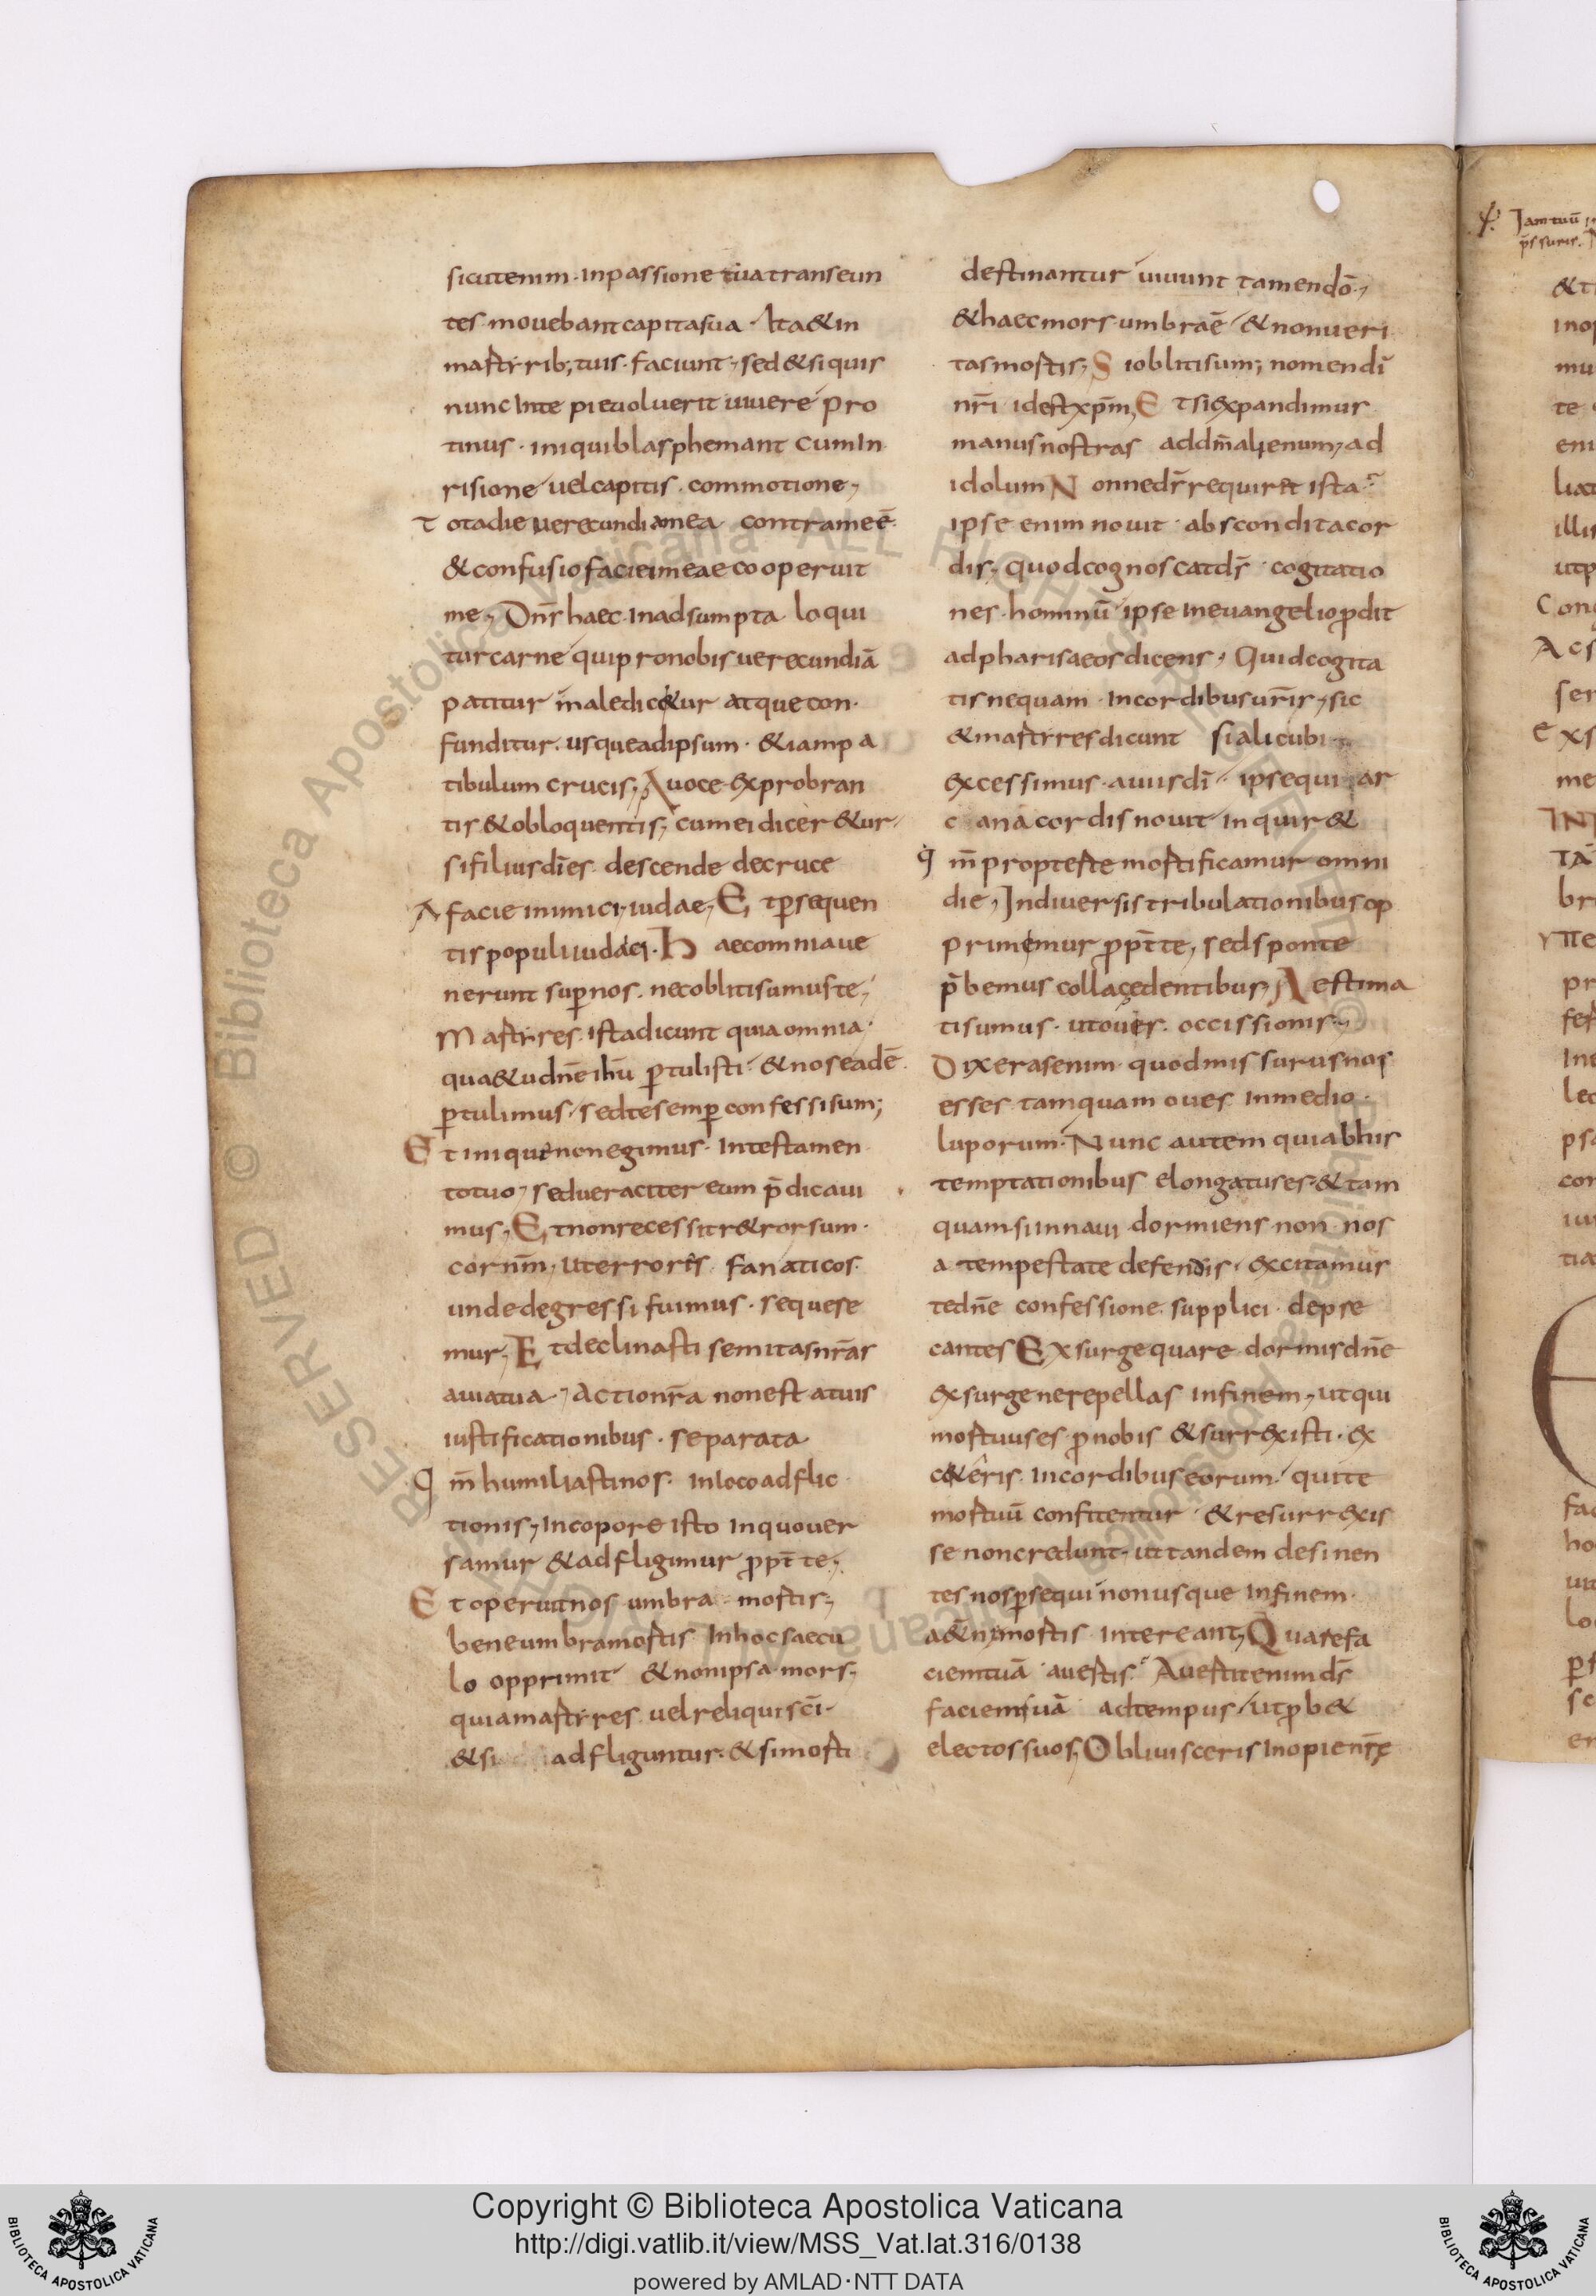 sicutenim · inpassione tua transeun
tes mouebant capita sua · Ita & in
martirib; tuis · faciunt, sed & si quis
nunc inte pie uoluerit uiuere pro
tinus · iniqui blasphemant cum in
risione uel capitis · commotione,
Tota die uerecundia mea contra me ē
& confusio faciei meae cooperuit
me, Dn̄s haec inadsumpta loqui
tur carne qui pro nobis uerecundiā
patitur maledic&ur atque con
funditur · usque ad ipsum · & iam pa
tibulum crucis, A uoce exprobran
tis & obloquentis, cum ei dicer&ur
si filius dī es descende de cruce
A facie inimici iudae, Et p̄sequen
tis populi iudaici · Haec omnia ue
nerunt sup̄ nos · nec obliti sumus te,
Martires ista dicunt quia omnia
quae & u dn̄e ihū p̄tulisti & nos eadē
p̄tulimus, sed te semp̄ confessi sum;
Et inique non egimus · In testamen
to tuo, sed ueraciter eum p̄dicaui
mus, Et non recessit r&rorsum ·
cor nm̄, ut errores fanaticos
unde degressi fuimus · sequere
mur, Et declinasti semitas nr̄as
a uia tua, Actio nr̄a non est a tuis
iustificationibus · separata
Qm̄ humiliasti nos · in loco adflic
tionis, In copore isto in quo uer
samur & adfligimur ppt̄ te,
Et operuit nos umbra mortis,
bene umbra mortis In hoc saecu
lo opprimit & non ipsa mors,
quia martires uel reliqui scī ·
& si adfliguntur · & si morti
destinantur uiuunt tamen dō,
& haec mors umbra ē & non ueri
tas mortis, Si obliti sum; nomen dī
nr̄i id est xp̄m, Et si expandimus
manus nostras ad dm̄ alienum, ad
idolum Nonne ds̄ requir&t ista
ipse enim nouit · abscondita cor
dis, quod cognoscat ds̄ · cogitatio
nes hominū ipse in euangelio p̄dit
ad pharisaeos dicens, Quid cogita
tis nequam · In cordibus ur̄is, sic
& martires dicunt si alicubi
excessimus · a uiis dī · ipse qui ar
c ana cordis nouit inquir&
Qm̄ propter te mortificamur omni
die, In diuersis tribulationibus op
primemur p̄pt̄ te, sed sponte
p̄bemus colla cedentibus, Aestima
ti sumus · ut oues occissionis,
Dixeras enim quod missurus nos
esses tamquam oues in medio
luporum · Nunc autem quia b his
temptationibus elongatus es & tam
quam si in naui dormiens non nos
a tempestate defendis · excitamus
te dn̄e confessione supplici depre
cantes Exsurge quare dormis dn̄e
exsurge ne repellas in finem, ut qui
mortuus es p̄ nobis & surrexisti · ex
c&eris in cordibus eorum · qui te
mortuū confitentur & resurrexis
se non credunt · ut tandem desinen
tes nos p̄sequi non usque in finem
a&nimortis intereant, Quare fa
ciem tuā auertis Auertit enim ds̄
faciem suā ad tempus, ut p̄b&
electos suos, Obliuisceris inopie nr̄ę